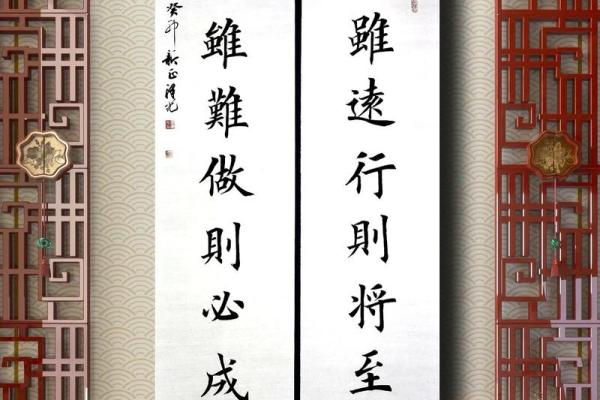 雖遠行則将至
雖難做則必成
癸卯新正